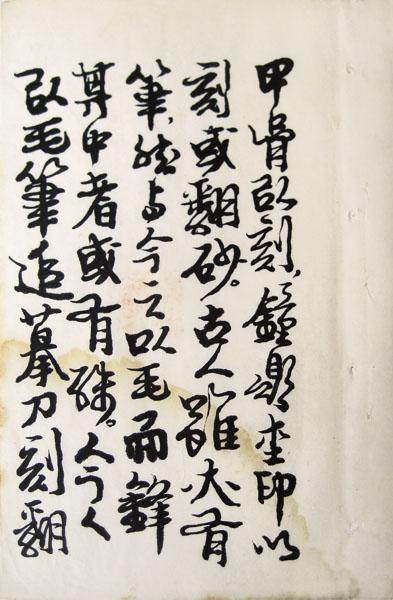 甲骨以刻,鐘鼎印以
刻或翻砂。古人雖必有
筆,然与今之以毛而鋒
其中者或有殊。人
以毛筆追摹刀刻翻